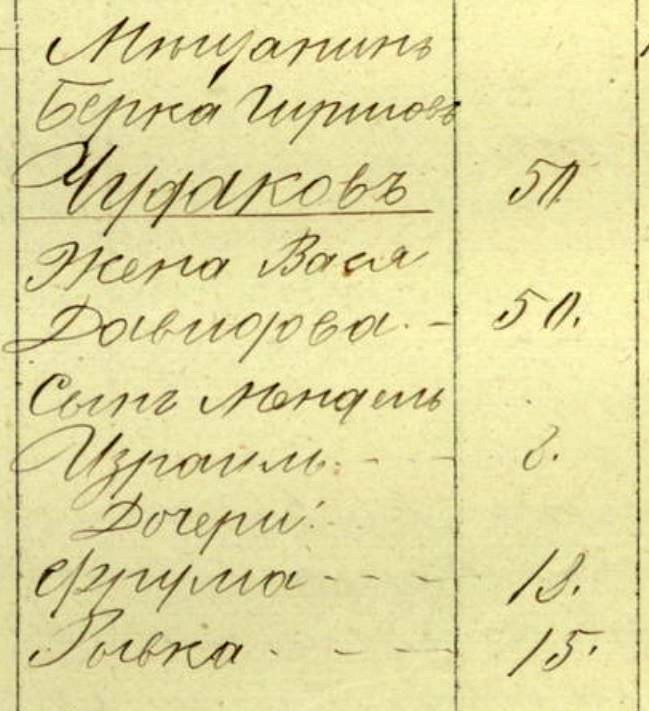 Мѣщанинъ
Берка Гиршовъ
Чудаковъ 50
Жена Вася
Давидова. - 50.
Сынъ Мендель
Израиль. - - - 8.
Дочери:
Фрума - - - 18.
Рывка. - - - 15.